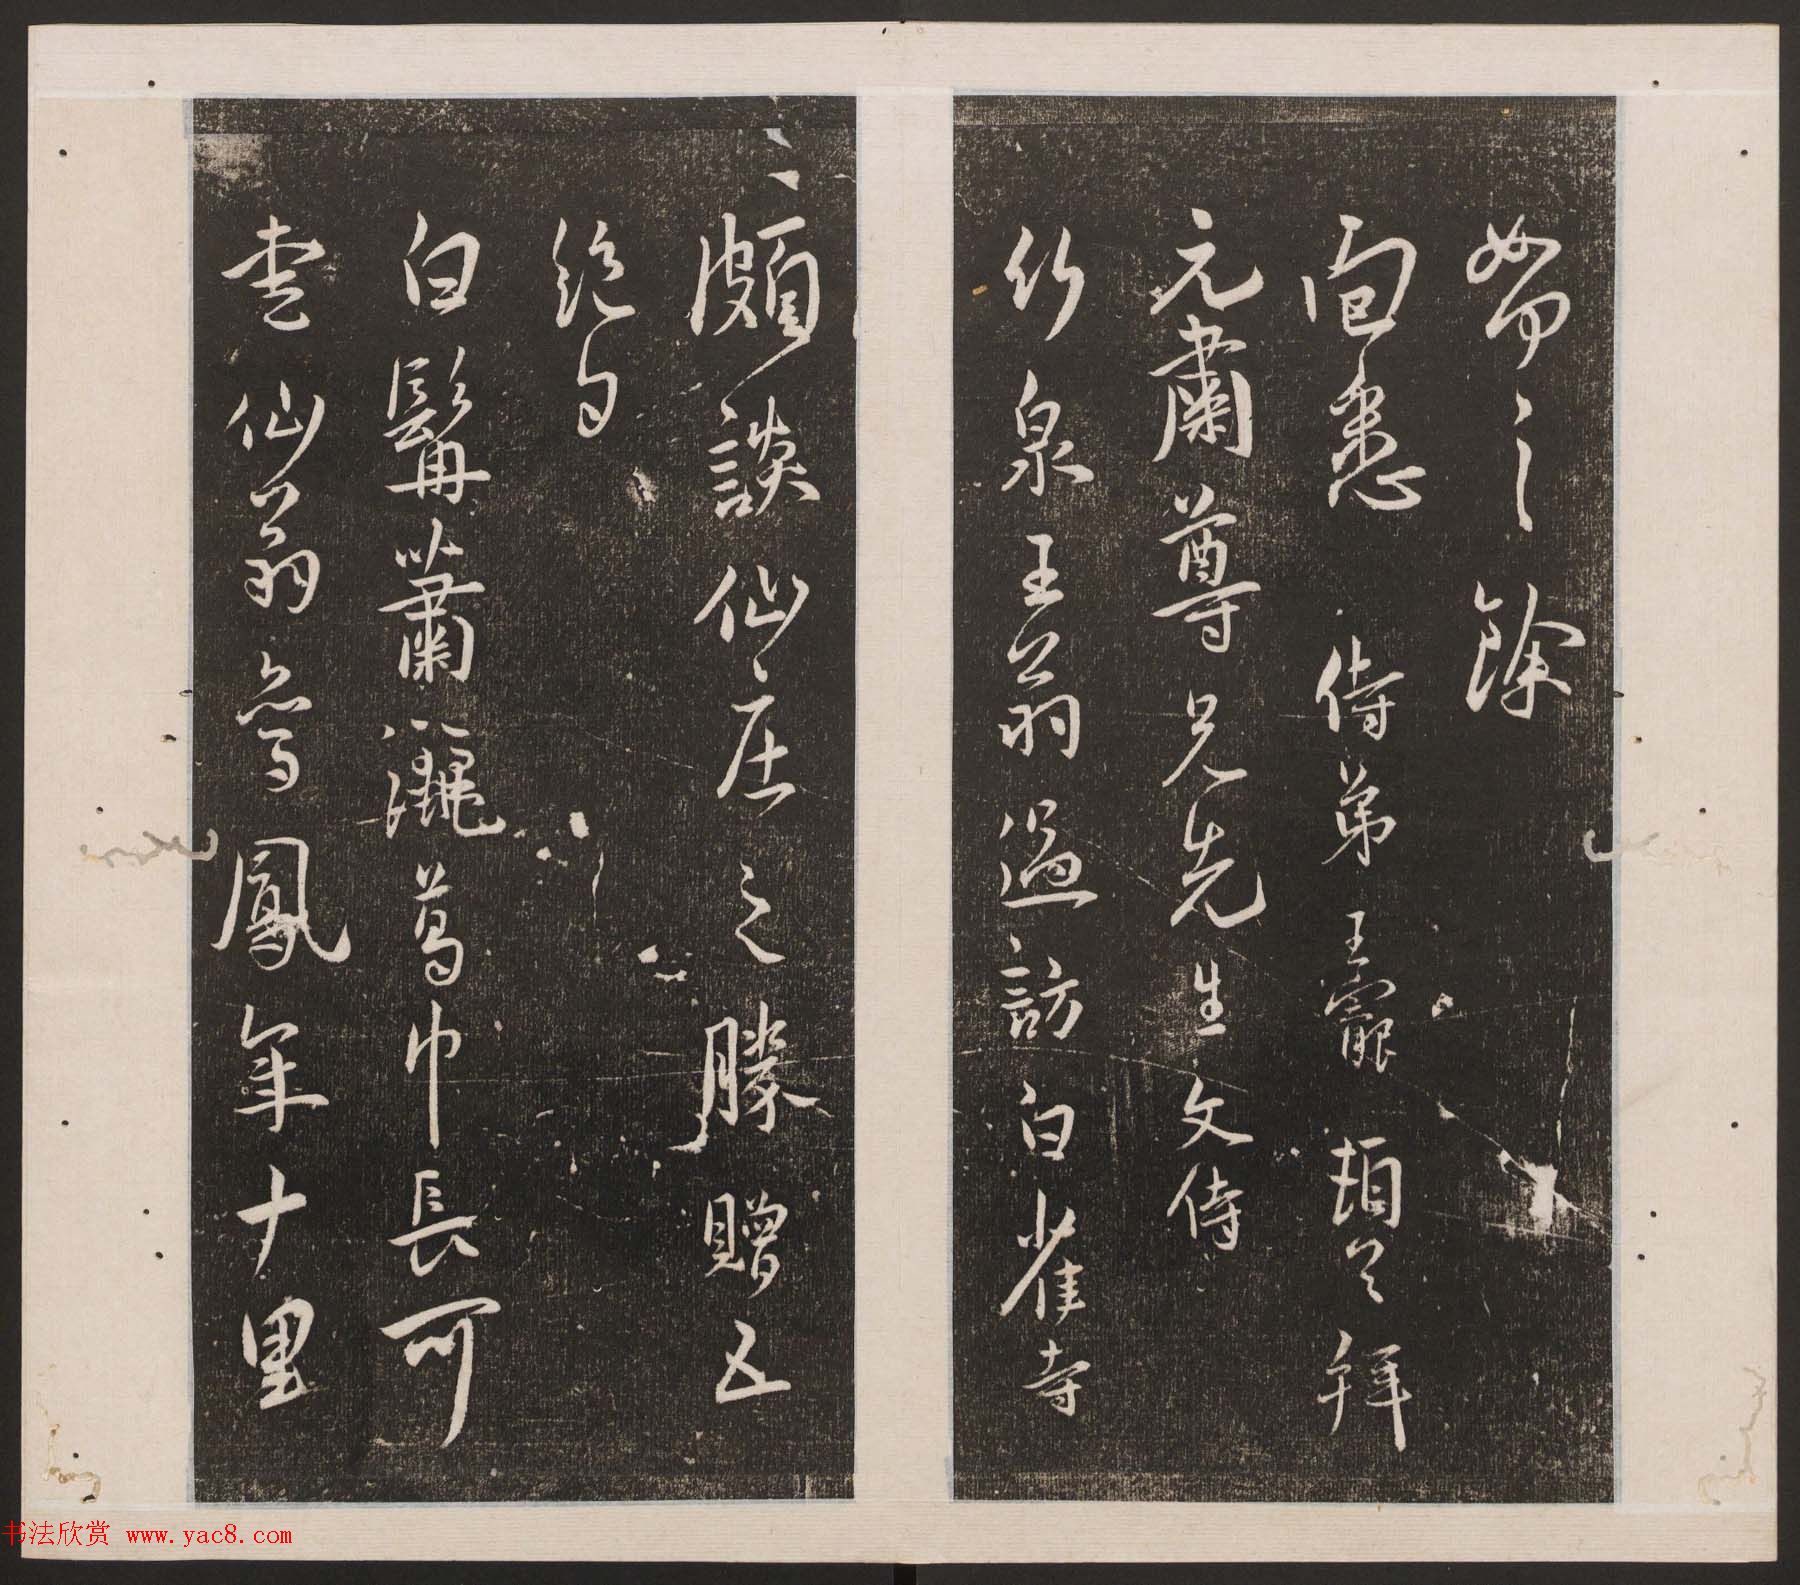 如命之餘
面悉 侍弟王寵頓首拜
元肅尊兄先生文侍
竹泉王翁過訪白雀寺
頗談仙庄之勝贈五
絕句
白髯蕭灑葛巾長可
是仙翁駕鳳牽十里
书法欣赏 www.yac8.com